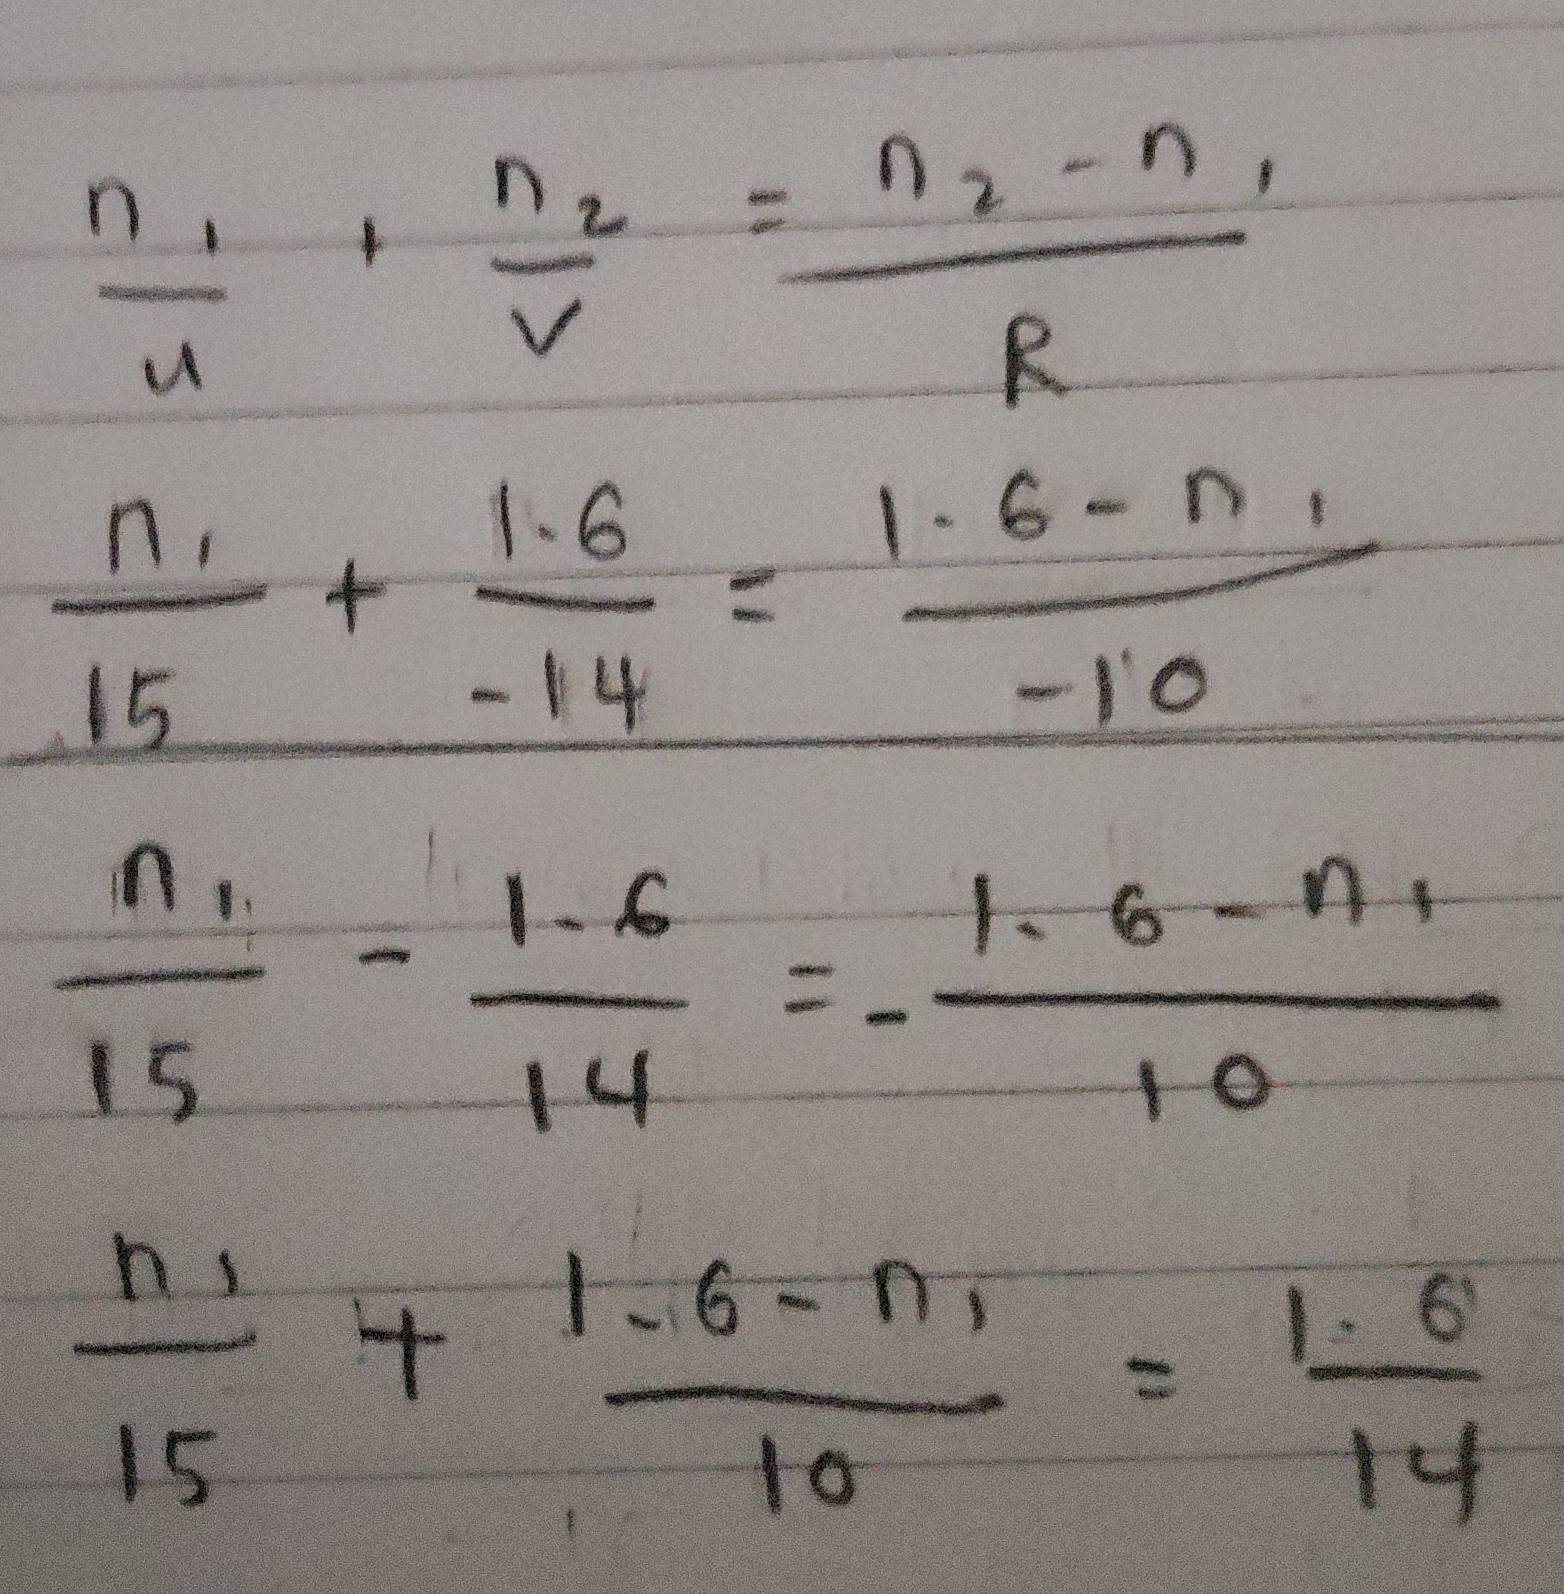 n₁/u + n₂/v = n₂ - n₁/R
n₁/15 + 1.6/-14 = 1.6 - n₁/-10
n₁/15 - 1.6/14 = - 1.6 - n₁/10
n₁/15 + 1.6 - n₁/10 = 1.6/14